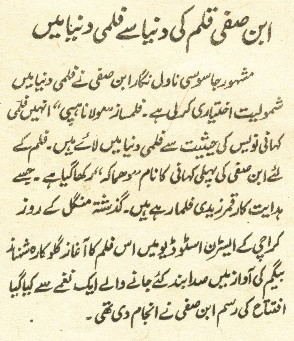 ابن صفی قلم کی دنیا سے فلمی دنیا میں
مشہور جاسوسی ناول نگار ابن صفی نے فلمی دنیا میں
شمولیت اختیار کر لی ہے۔ فلمساز "مولانا ہپی" انہیں فلمی
کہانی نویس کی حیثیت سے فلمی دنیا میں لائے ہیں۔ فلم کے
لئے ابن صفی کی پہلی کہانی کا نام "دھماکہ" رکھا گیا ہے۔ جسے
ہدایت کار قمر زیدی فلما رہے ہیں۔ گذشتہ منگل کے روز
کراچی کے ایسٹرن اسٹوڈیو میں اس فلم کا آغاز گلوکارہ شہناز
بیگم کی آواز میں صدا بند کئے جانے والے ایک نغمے سے کیا گیا
افتتاح کی رسم ابن صفی نے انجام دی تھی۔